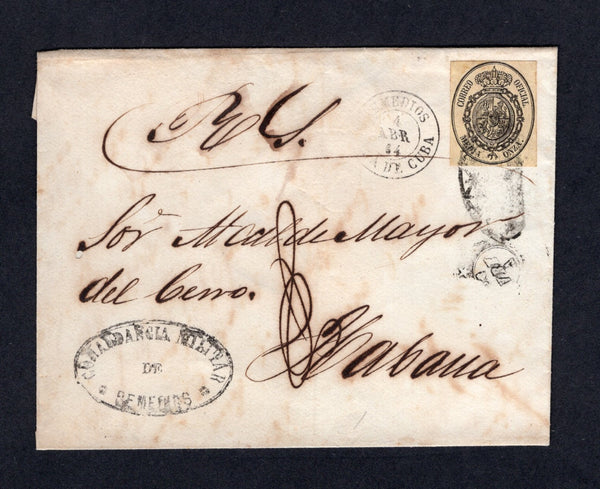 R S.
REMEDIOS
4
ABR
64
DE CUBA
CORREO OFICIAL
MEDIA ONZA.
Sor. Alcalde Mayor
del Cerro.
Habana
COMANDANCIA MILITAR
DE
REMEDIOS